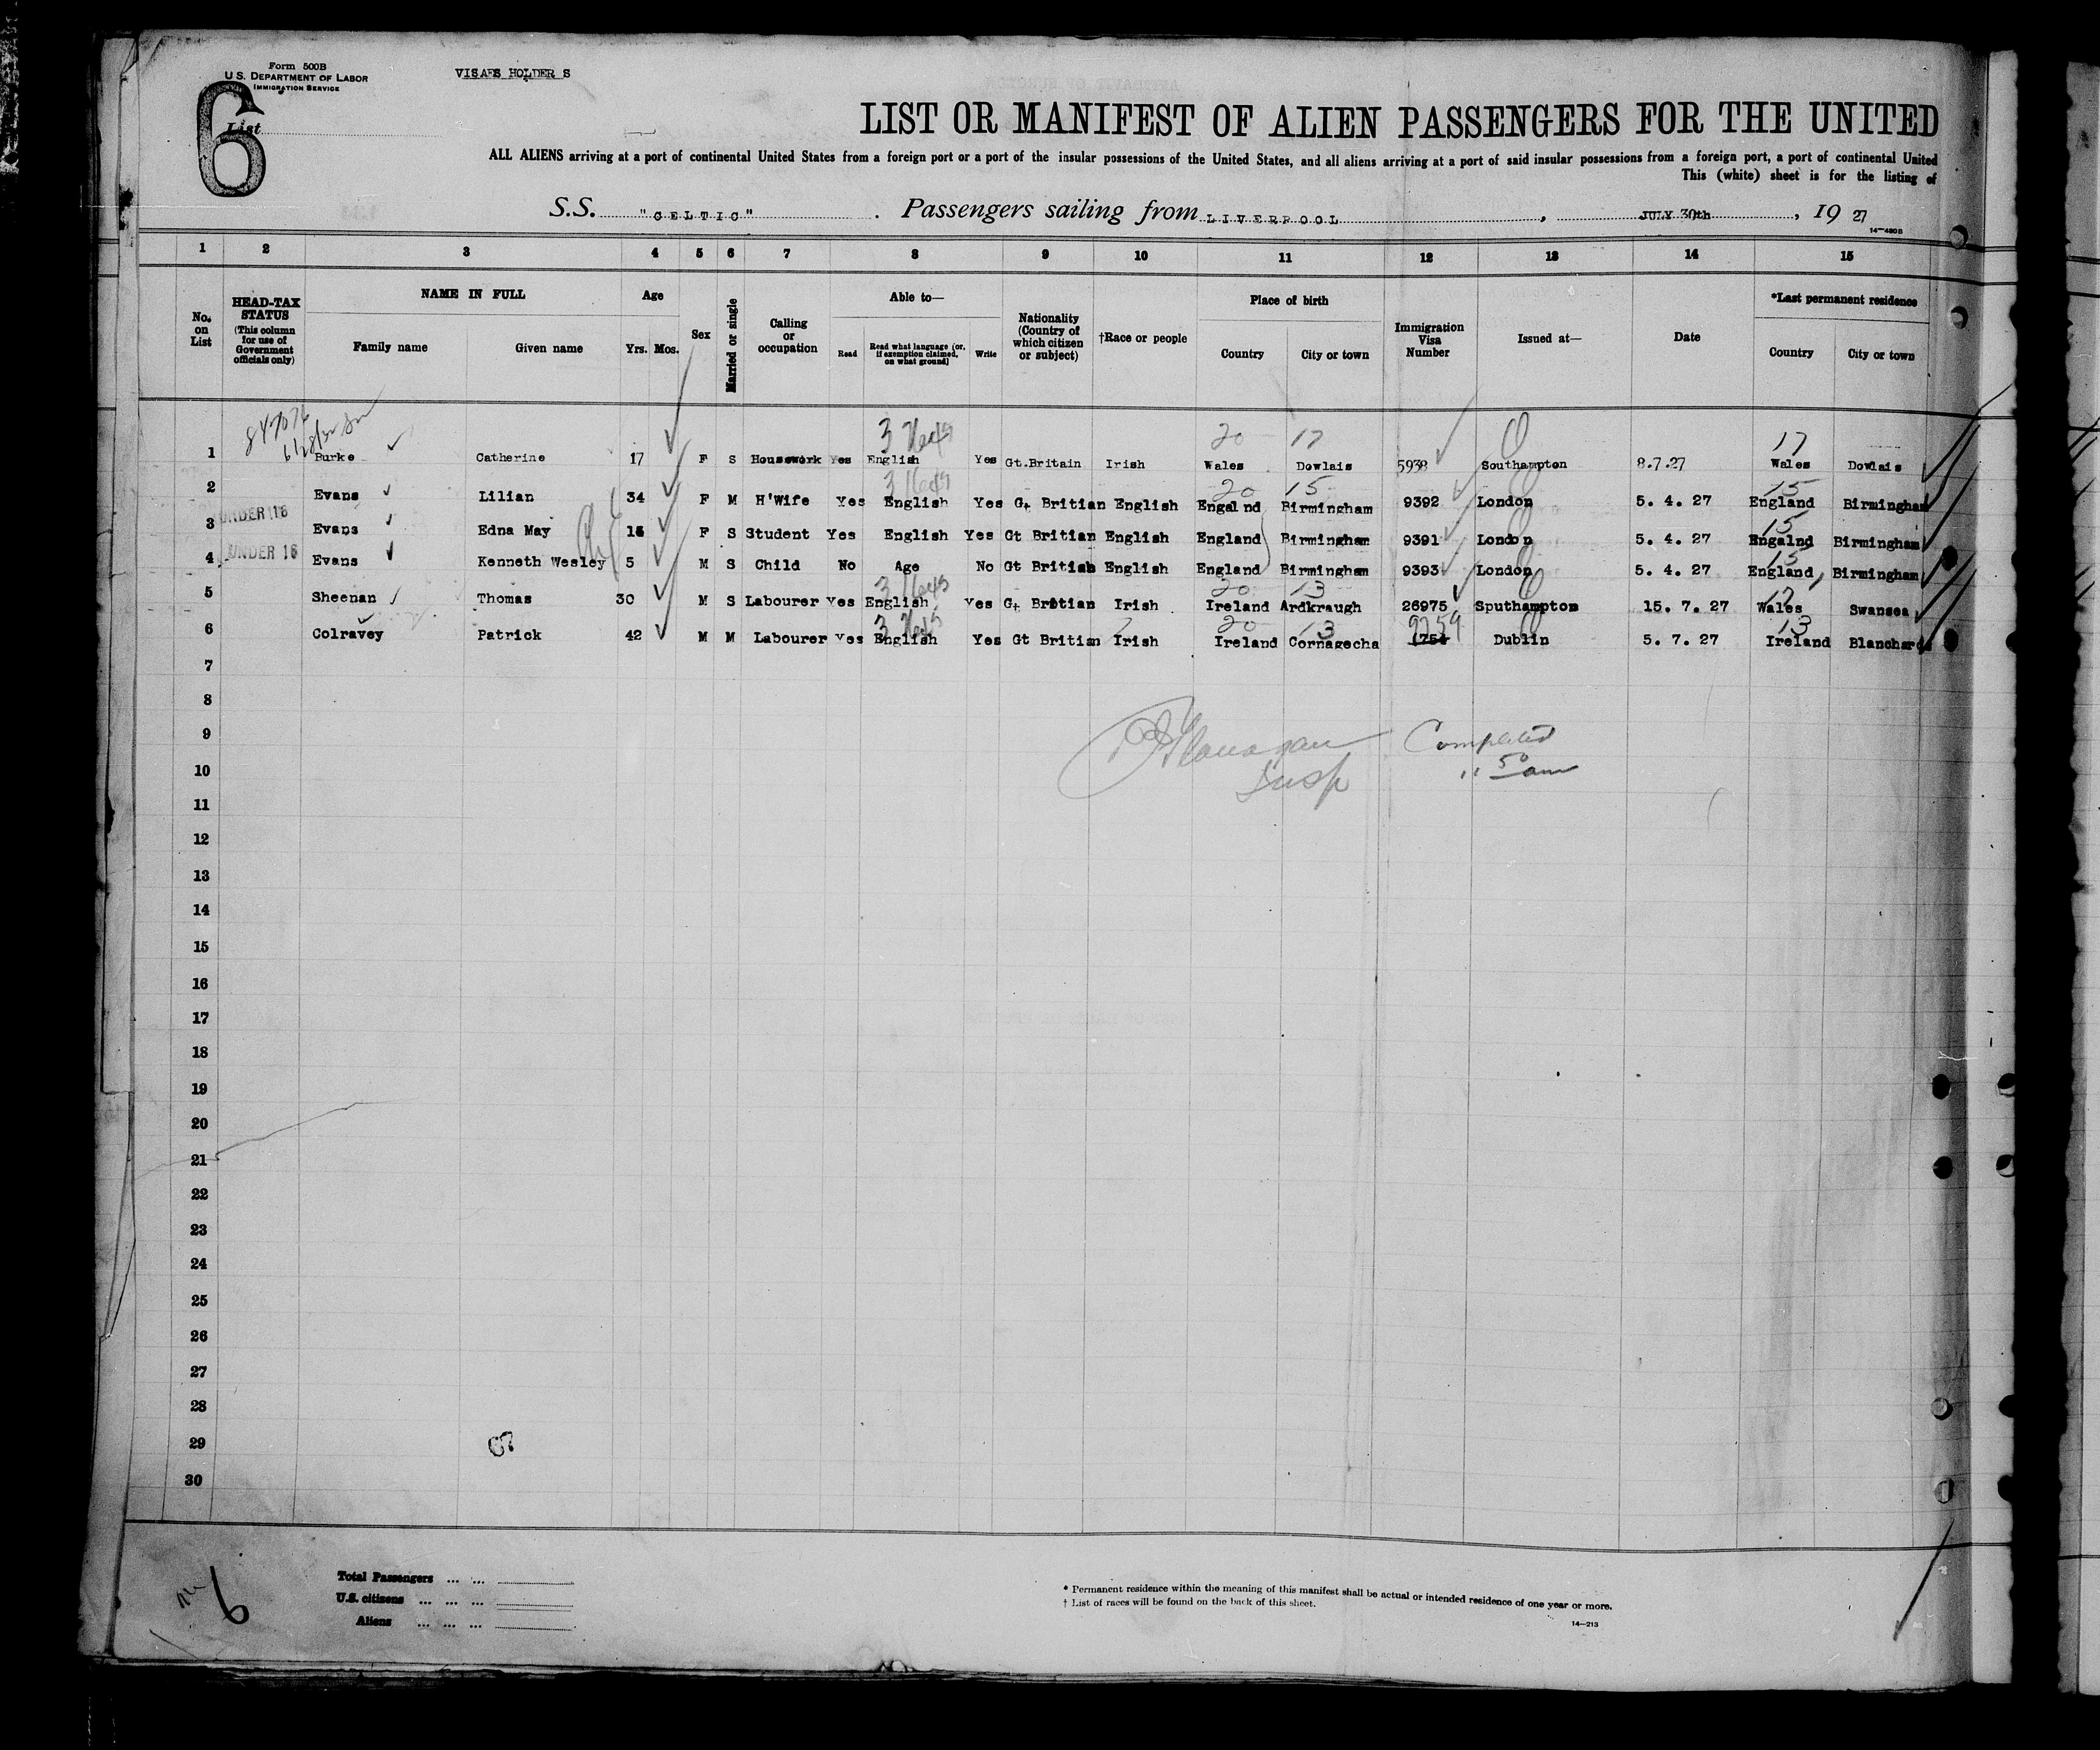 Form 500B
U.S. DEPARTMENT OF LABOR
IMMIGRATION SERVICE
VISAES HOLDER S
6
List
LIST OR MANIFEST OF ALIEN PASSENGERS FOR THE UNITED
ALL ALIENS arriving at a port of continental United States from a foreign port or a port of the insular possessions of the United States, and all aliens arriving at a port of said insular possessions from a foreign port, a port of continental United
This (white) sheet is for the listing of
S.S. "CELTIC". Passengers sailing from LIVERPOOL, JULY 30th, 19 27
14—480B
1 2 3 4 5 6 7 8 9 10 11 12 13 14 15
No. on List
HEAD-TAX STATUS (This column for use of Government officials only)
NAME IN FULL
Family name Given name
Age
Yrs. Mos.
Sex
Married or single
Calling or occupation
Able to—
Read Read what language (or, if exemption claimed, on what ground) Write
Nationality (Country of which citizen or subject)
†Race or people
Place of birth
Country City or town
Immigration Visa Number
Issued at—
Date
*Last permanent residence
Country City or town
20 17 17
1 Burke Catherine 17 F S Housework Yes English Yes Gt.Britain Irish Wales Dowlais 5938 Southampton 8.7.27 Wales Dowlais
20 15 15
2 Evans Lilian 34 F M H'Wife Yes English Yes Gt Britian English Engalnd Birmingham 9392 London 5. 4. 27 England Birmingham
UNDER 16 15
3 Evans Edna May 15 F S Student Yes English Yes Gt Britian English England Birmingham 9391 London 5. 4. 27 Engalnd Birmingham
UNDER 16 15
4 Evans Kenneth Wesley 5 M S Child No Age No Gt British English England Birmingham 9393 London 5. 4. 27 England Birmingham
20 13 17
5 Sheenan Thomas 30 M S Labourer Yes English Yes Gt Brotian Irish Ireland Ardkraugh 26975 Sputhampton 15. 7. 27 Wales Swansea
20 13 9759 13
6 Colravey Patrick 42 M M Labourer Yes English Yes Gt Britian Irish Ireland Cornagecha 1754 Dublin 5. 7. 27 Ireland Blanchards
7
8
9
Flanagan Completed
10
Insp 11 50 am
11
12
13
14
15
16
17
18
19
20
21
22
23
24
25
26
27
28
29
30
Total Passengers ... ...
U.S. citizens ... ... ...
Aliens ... ... ...
6
* Permanent residence within the meaning of this manifest shall be actual or intended residence of one year or more.
† List of races will be found on the back of this sheet.
14—213